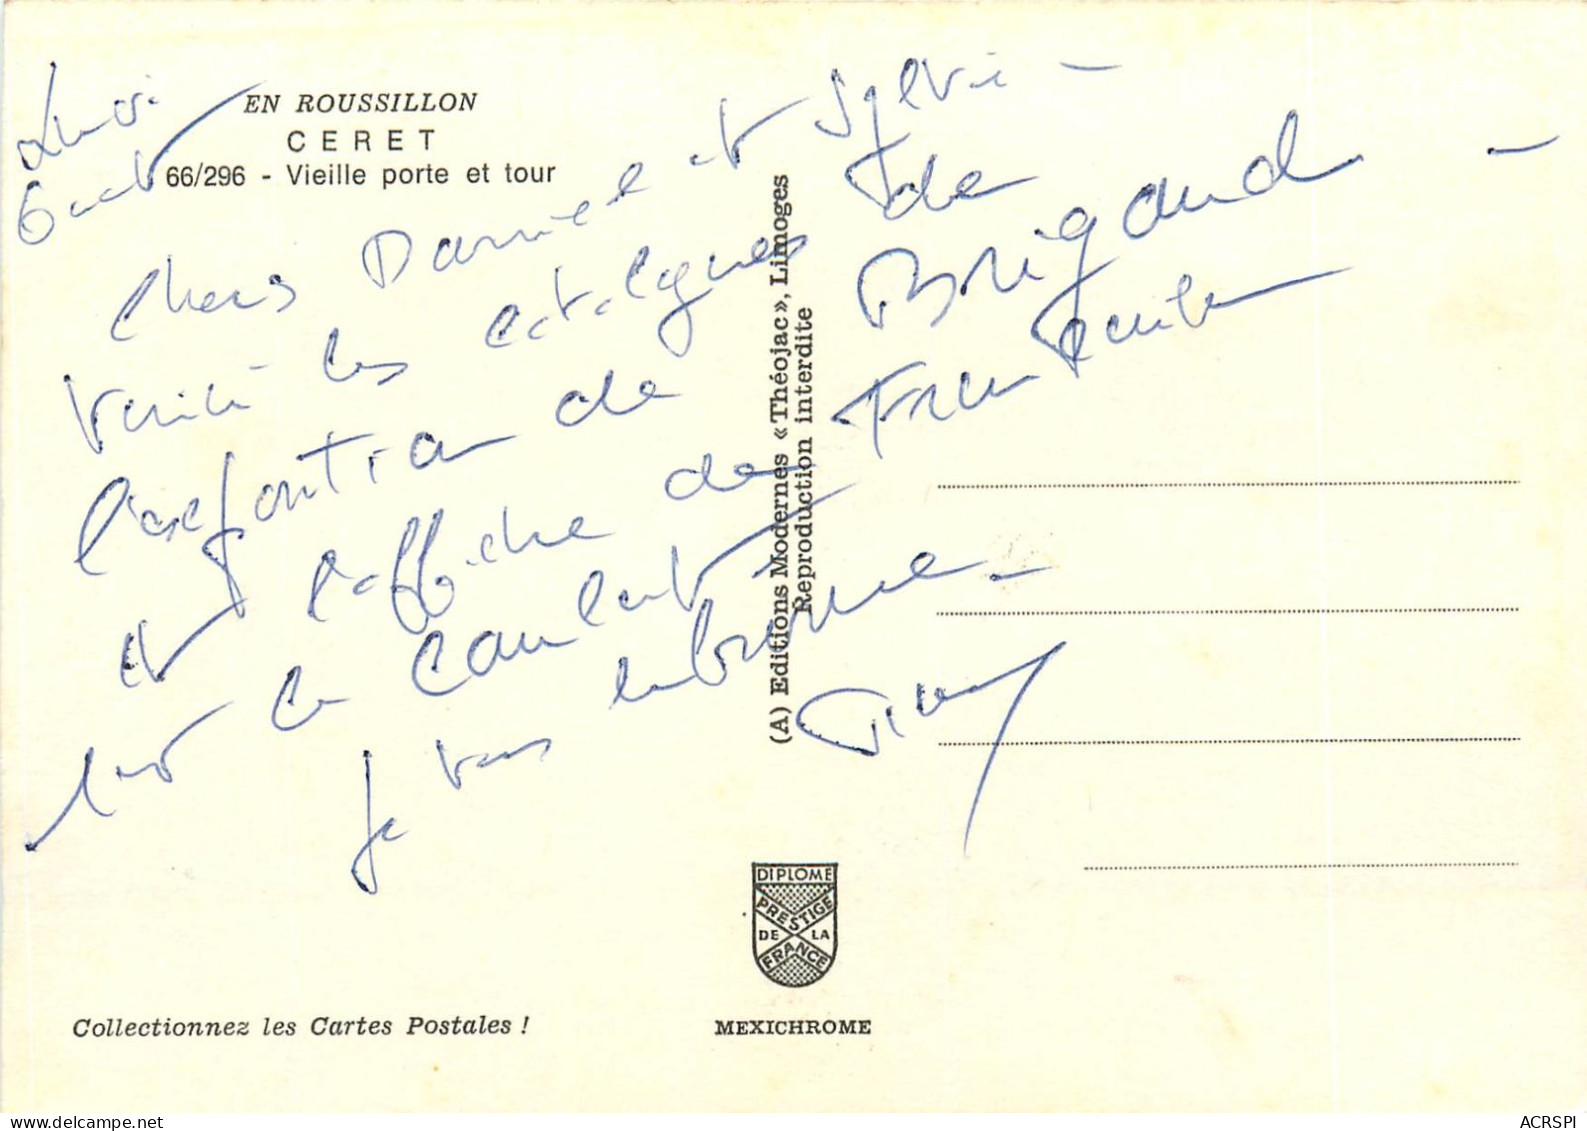 EN ROUSSILLON
CERET
66/296 - Vieille porte et tour
Lundi
6 août
Chers Daniel et Sylvie -
Voici les catalogues de
l'exposition de Brigand -
et l'affiche de
sur le
Je vous embrasse -
(A) Editions Modernes « Théojac », Limoges
Reproduction interdite
DIPLOME
PRESTIGE
DE LA
FRANCE
Collectionnez les Cartes Postales !
MEXICHROME
ACRSPI